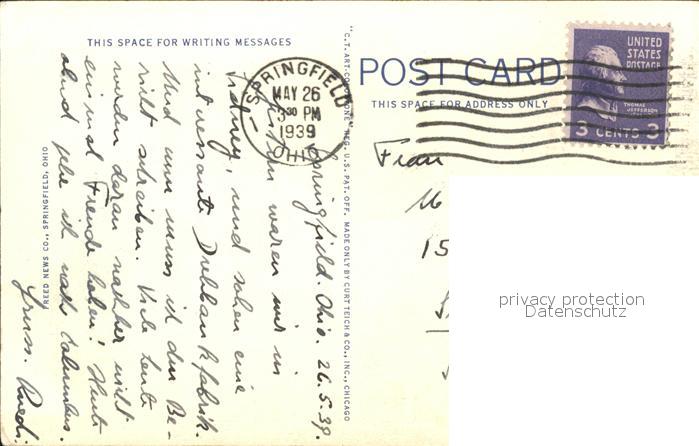 THIS SPACE FOR WRITING MESSAGES
Springfield. Ohio. 26.5.39.
Gestern waren wir in
Sidney, und sahen eine
interessante Drehbankfabrik.
Und nun muss ich den Be-
richt schreiben. Viele Leute
werden daran nachher nicht
einmal Freude haben! Heute
abend gehe ich nach Columbus.
Gruss. Ruedi.
FREED NEWS CO., SPRINGFIELD, OHIO
"C.T. ART-COLORTONE" REG. U.S. PAT. OFF. MADE ONLY BY CURT TEICH & CO., INC., CHICAGO
SPRINGFIELD
MAY 26
3 30 PM
1939
OHIO
POST CARD
THIS SPACE FOR ADDRESS ONLY
UNITED
STATES
POSTAGE
THOMAS
JEFFERSON
3 CENTS 3
Frau
15
privacy protection
Datenschutz